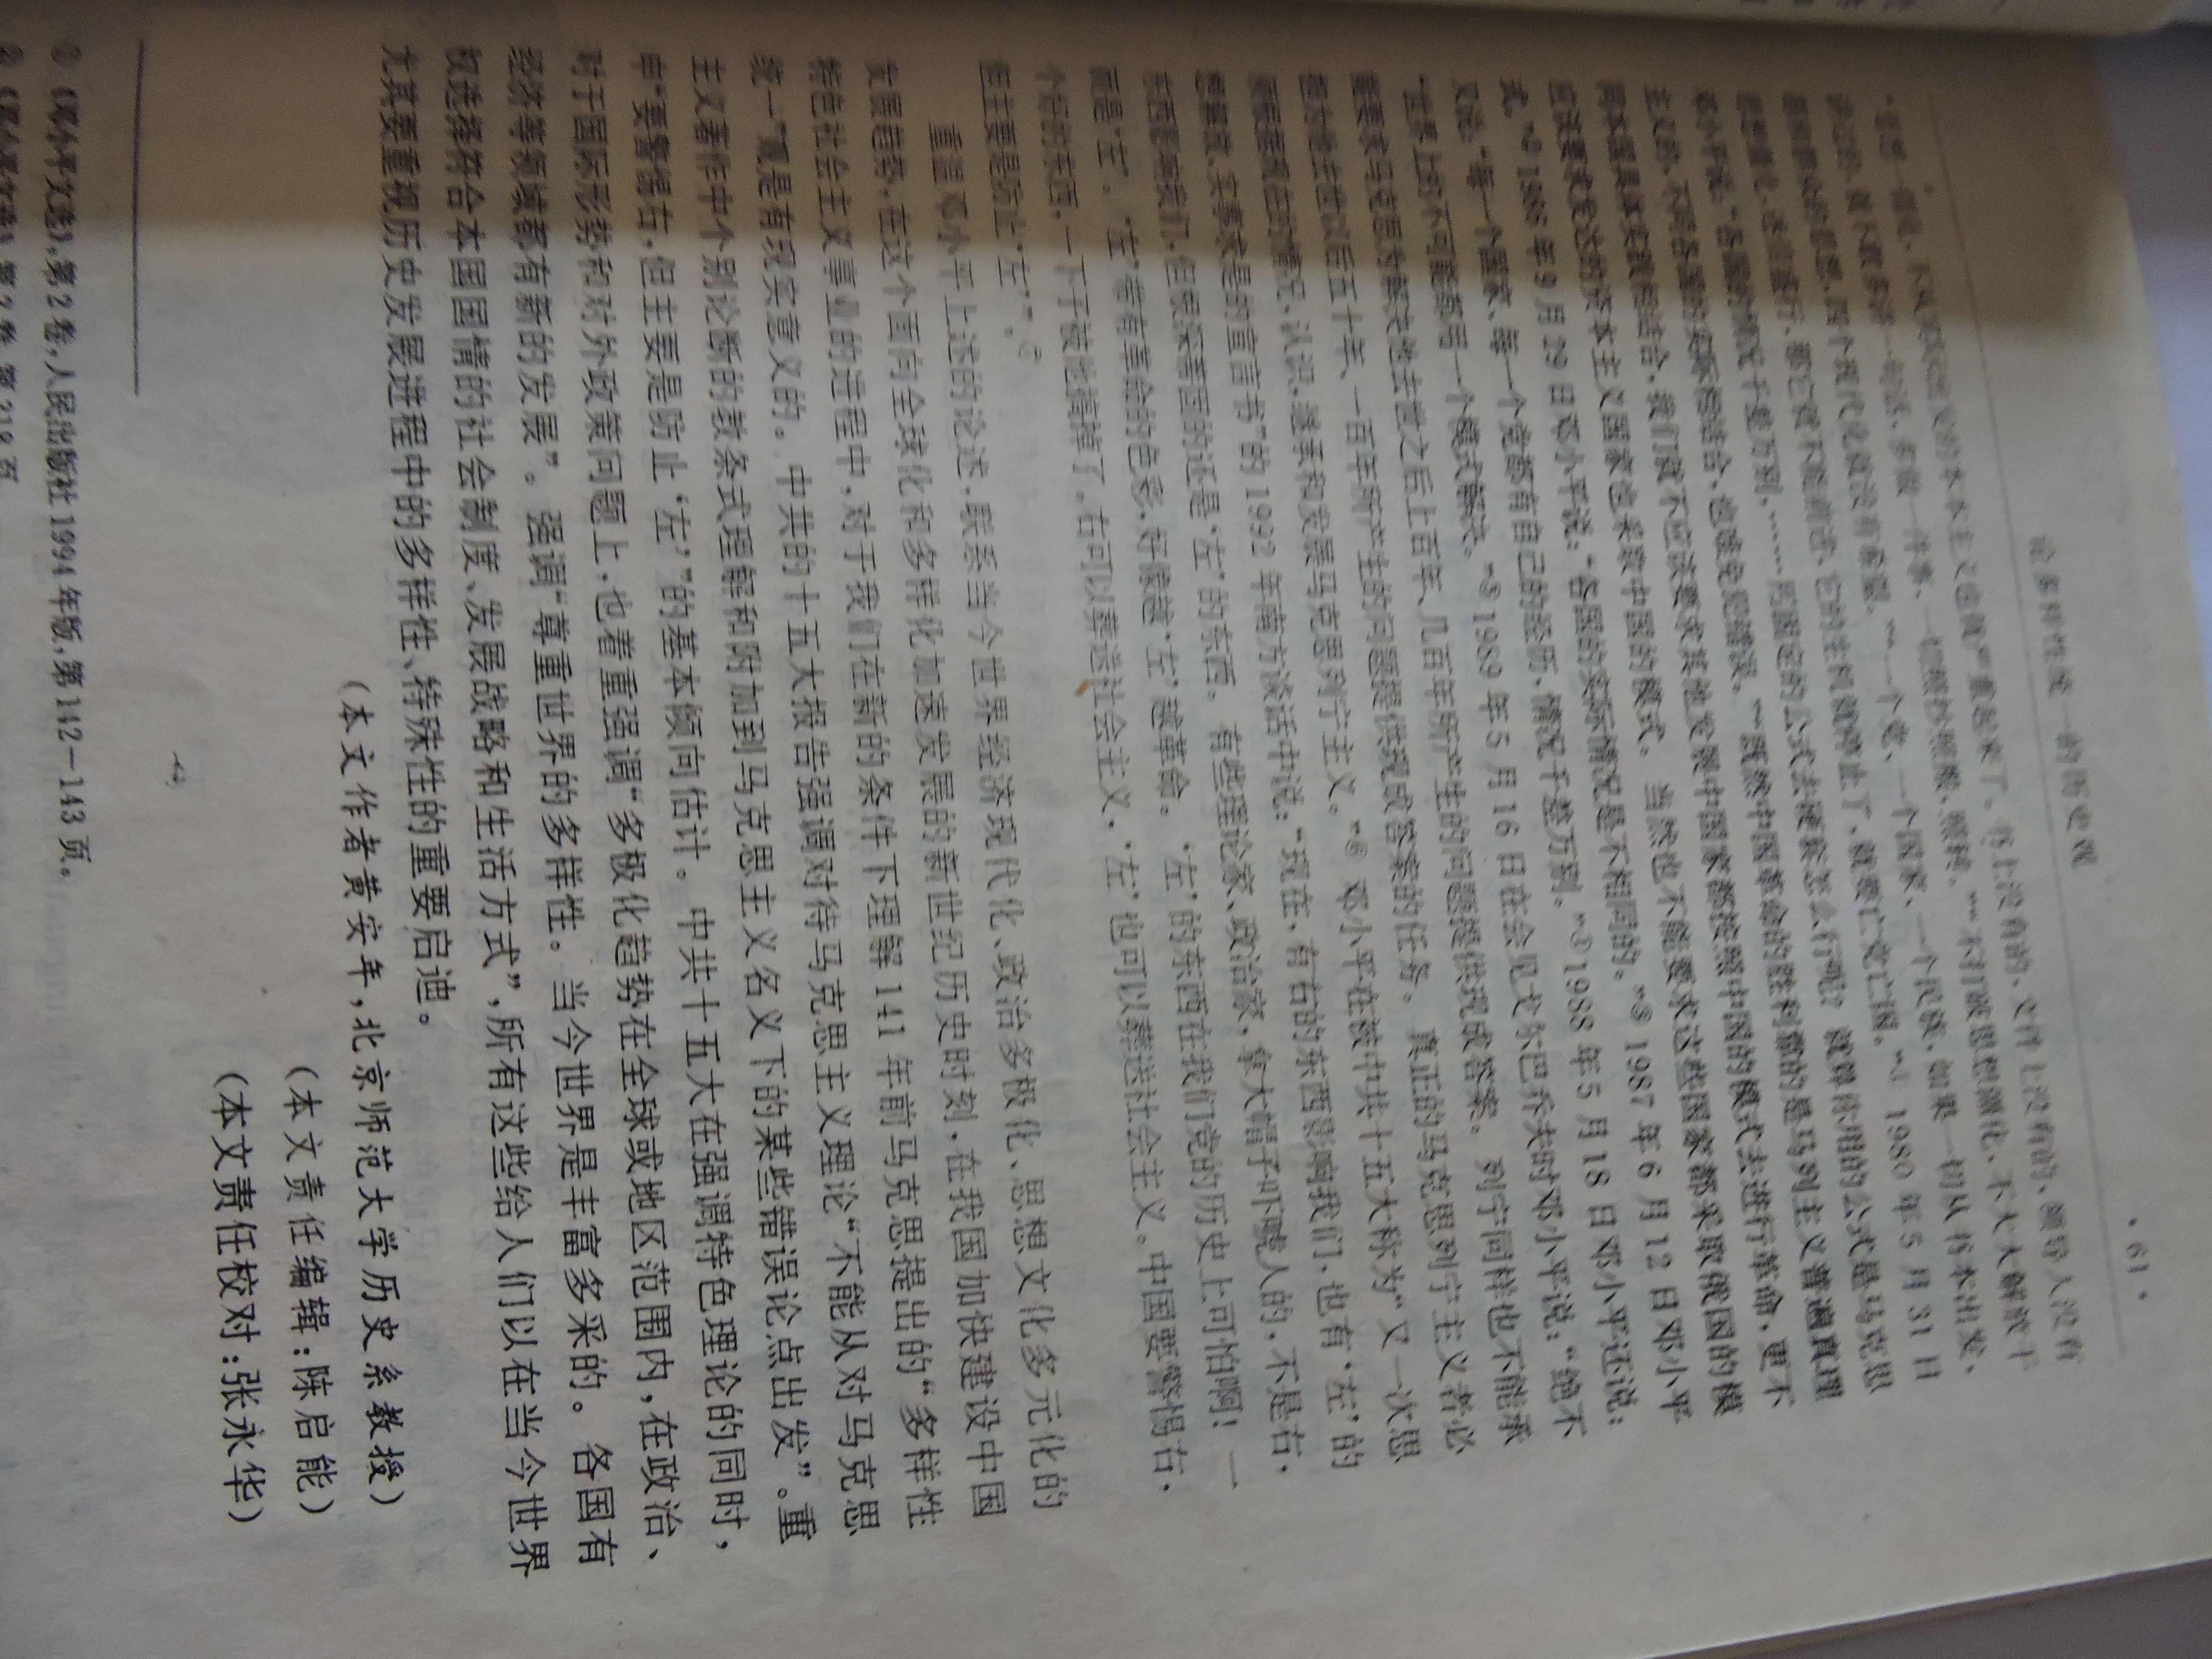 ·61·
论多样性统一的历史观
“思想一僵化，不从实际出发的本本主义也就严重起来了。书上没有的，文件上没有的，领导人没有
讲过的，就不敢多讲一句话，多做一件事，一切照抄照搬照转。”“不打破思想僵化，不大大解放干
部和群众的思想，四个现代化就没有希望。”“一个党、一个国家、一个民族，如果一切从书本出发，
思想僵化，迷信盛行，那它就不能前进，它的生机就停止了，就要亡党亡国。”① 1980年5月31日
邓小平说：“各国的情况千差万别，……用固定的公式去硬套怎么行呢？就算你用的公式是马克思
主义的，不同各国的实际相结合，也难免犯错误。”“既然中国革命的胜利靠的是马列主义普遍真理
同本国具体实践相结合，我们就不应该要求其他发展中国家都按照中国的模式去进行革命，更不
应该要求发达的资本主义国家也采取中国的模式。当然也不能要求这些国家都采取俄国的模
式。”② 1986年9月29日邓小平说：“各国的实际情况是不相同的。”③ 1987年6月12日邓小平
又说：“每一个国家、每一个党都有自己的经历，情况千差万别。”④1988年5月18日邓小平还说：
“世界上的不可能都用一个模式解决。”⑤1989年5月16日在会见戈尔巴乔夫时邓小平说：“绝不
能要求马克思为解决他去世之后上百年、几百年所产生的问题提供现成答案。列宁同样也不能承
担为他去世以后五十年、一百年所产生的问题提供现成答案的任务。真正的马克思列宁主义者必
须根据现在的情况，认识，继承和发展马克思列宁主义。”⑥ 邓小平在被中共十五大称为“又一次思
想解放，实事求是的宣言书”的1992年南方谈话中说：“现在，有右的东西影响我们，也有‘左’的
东西影响我们，但根深蒂固的还是‘左’的东西。有些理论家、政治家，拿大帽子吓唬人的，不是右，
而是‘左’。‘左’带有革命的色彩，好像越‘左’越革命。‘左’的东西在我们党的历史上可怕啊！一
个好的东西，一下子被他搞掉了。右可以葬送社会主义，‘左’也可以葬送社会主义。中国要警惕右，
但主要是防止‘左’”。⑦
重温邓小平上述的论述，联系当今世界经济现代化、政治多极化、思想文化多元化的
发展趋势，在这个面向全球化和多样化加速发展的新世纪历史时刻，在我国加快建设中国
特色社会主义事业的进程中，对于我们在新的条件下理解141年前马克思提出的“多样性
统一”观是有现实意义的。中共的十五大报告强调对待马克思主义理论“不能从对马克思
主义著作中个别论断的教条式理解和附加到马克思主义名义下的某些错误论点出发”。重
申“要警惕右，但主要是防止‘左’”的基本倾向估计。中共十五大在强调特色理论的同时，
对于国际形势和对外政策问题上，也着重强调“多极化趋势在全球或地区范围内，在政治、
经济等领域都有新的发展”。强调“尊重世界的多样性。当今世界是丰富多采的。各国有
权选择符合本国国情的社会制度、发展战略和生活方式”，所有这些给人们以在当今世界
尤其要重视历史发展进程中的多样性、特殊性的重要启迪。
（本文作者黄安年，北京师范大学历史系教授）
（本文责任编辑：陈启能）
（本文责任校对：张永华）
① 《邓小平文选》，第2卷，人民出版社1994年版，第142－143页。
② 《邓小平文选》，第2卷，第318页